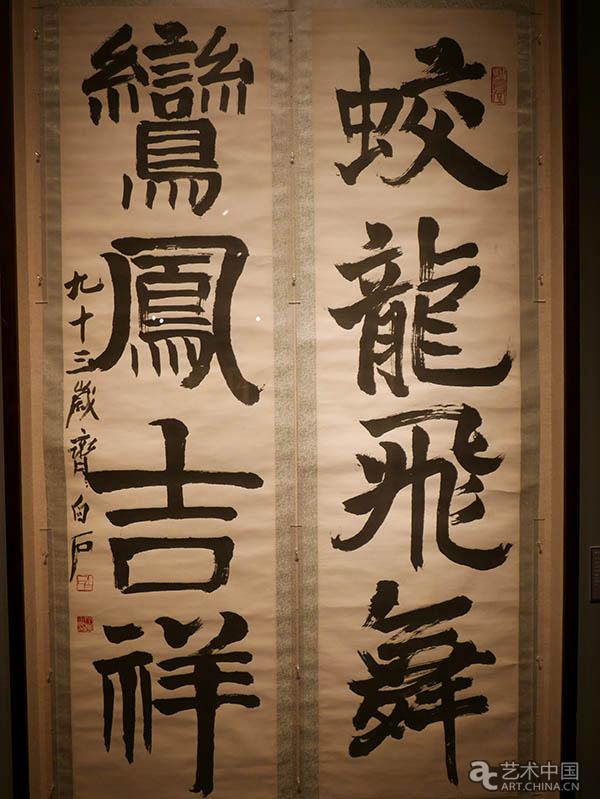 蛟龍飛舞
鸞鳳吉祥
九十三歲齊白石
艺术中国
ART.CHINA.CN